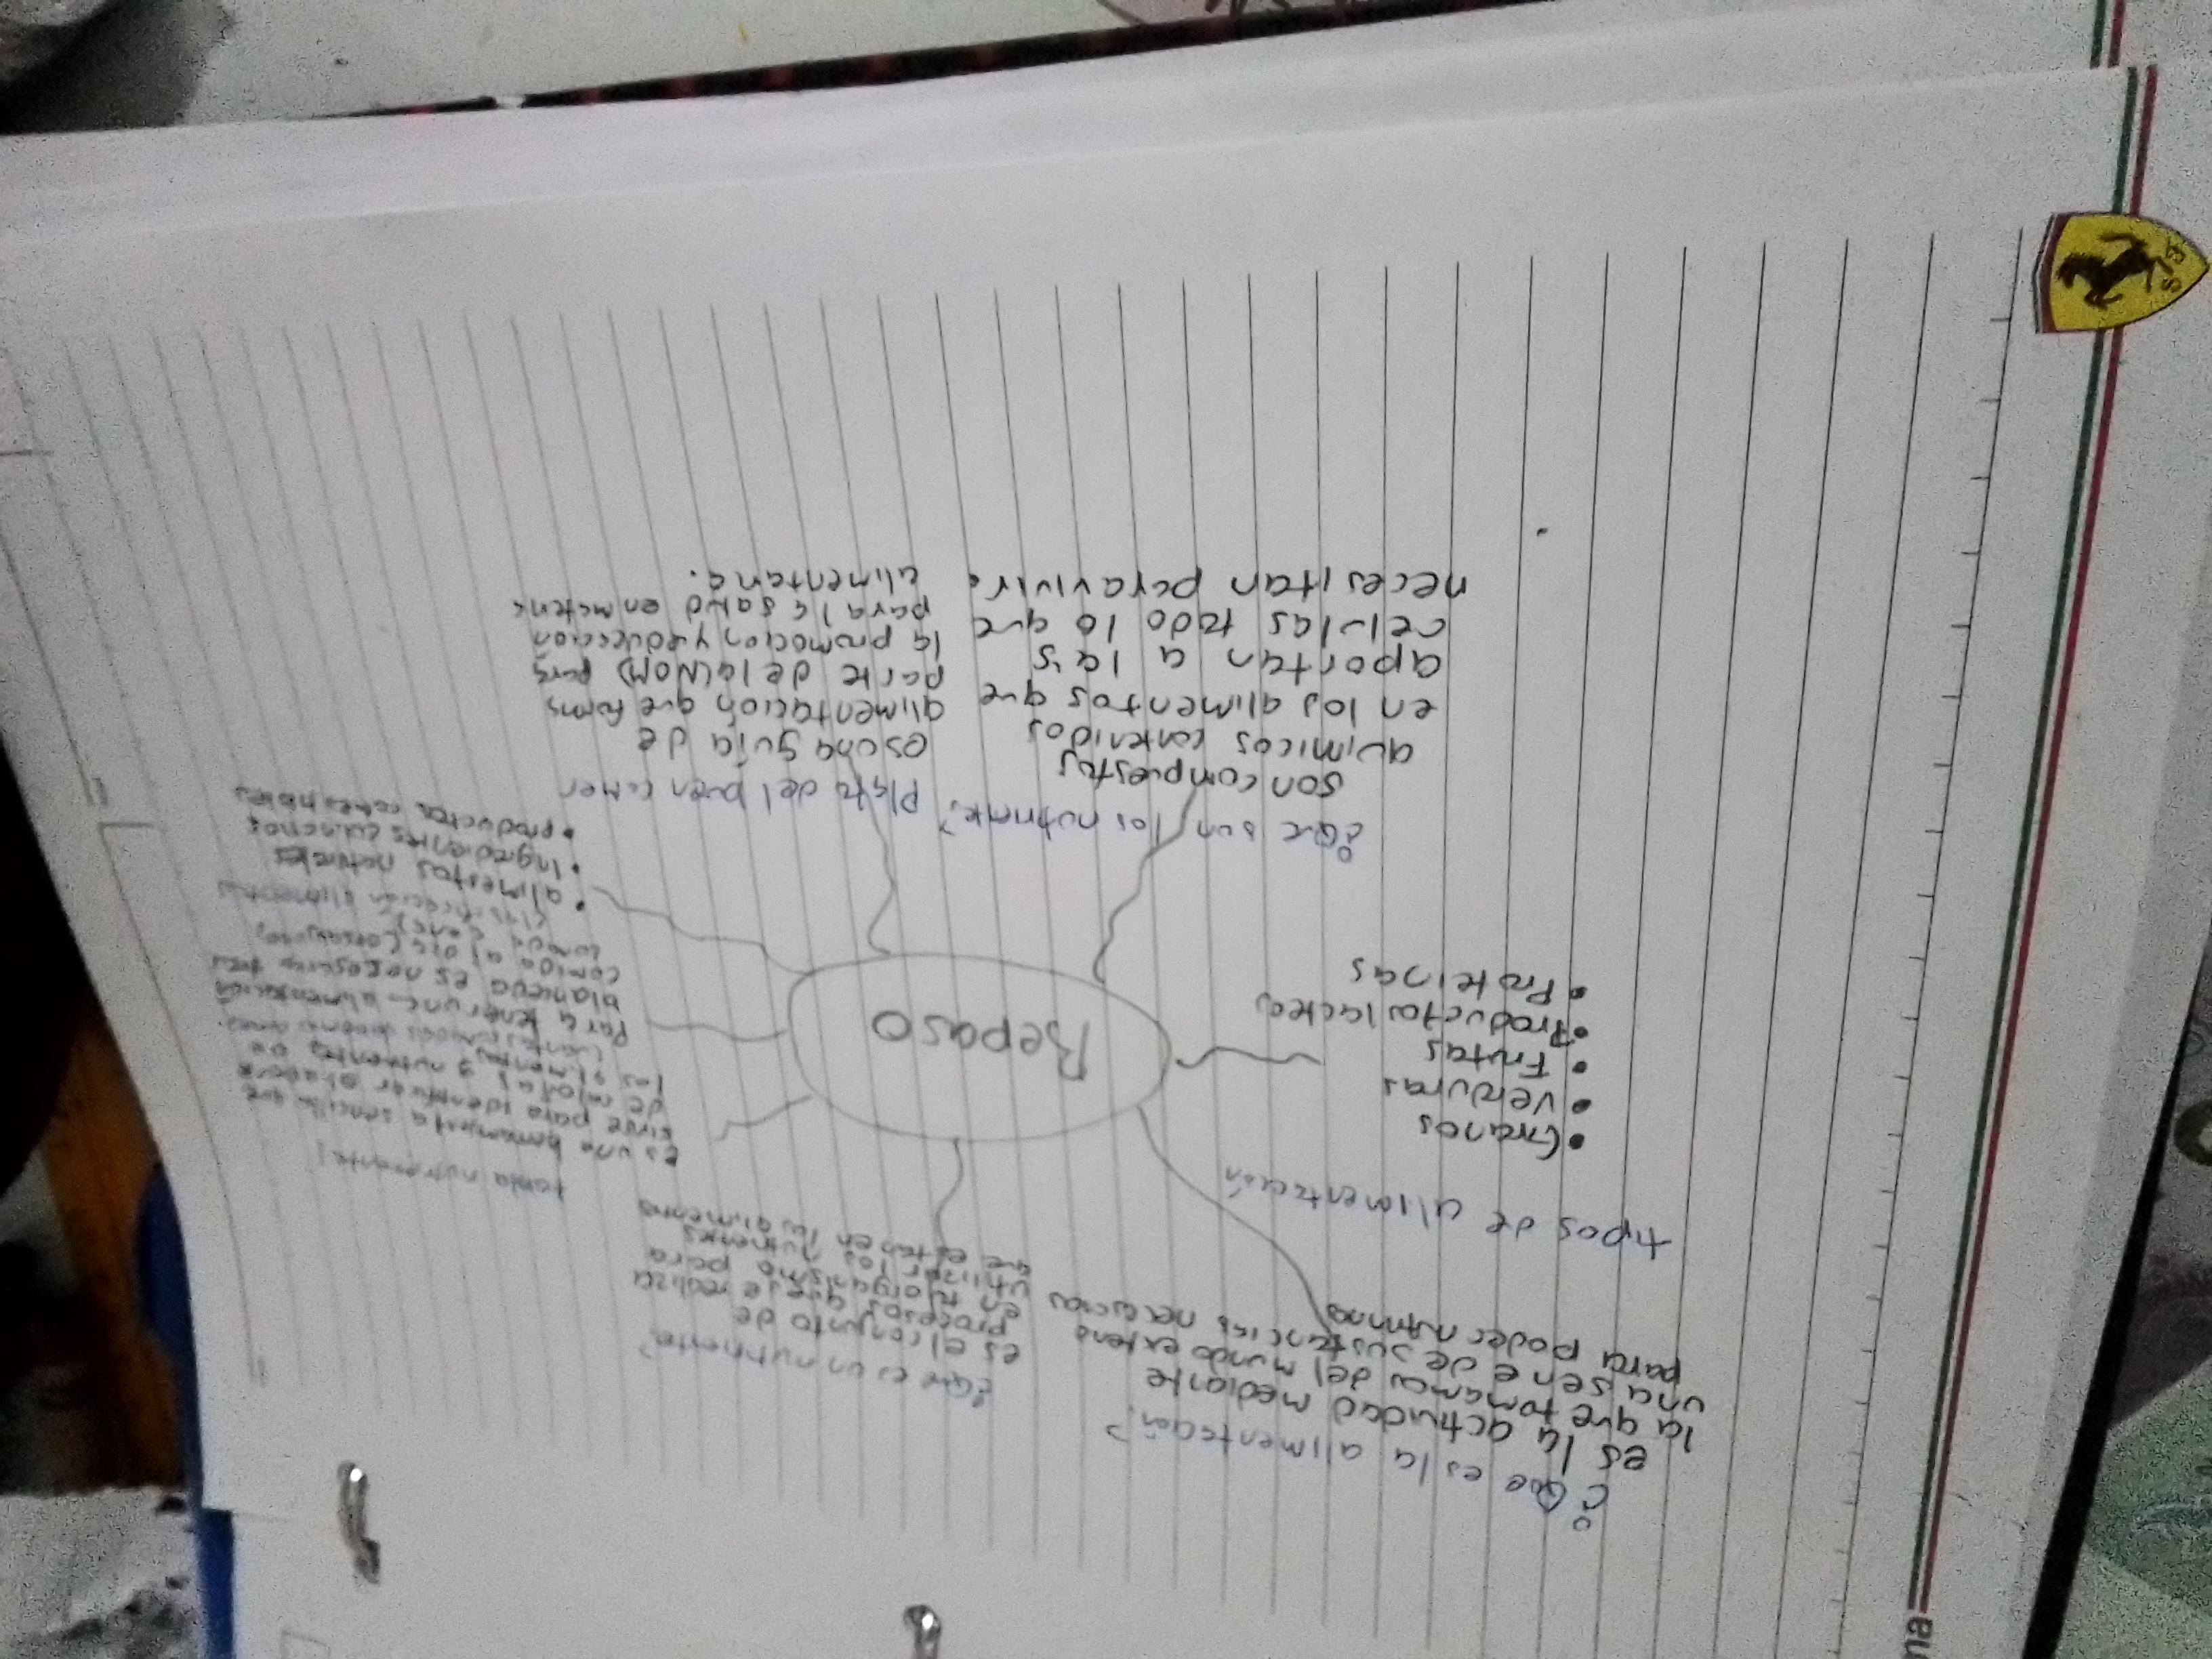 ¿Que es la alimentación?
es la actividad mediante
la que tomamos del mundo externo
una serie de sustancias necesarias
para poder nutrirnos
tipos de alimentación
• Granos
• Verduras
• Frutas
• Productos lacteos
• Proteinas
¿Que son los nutrientes?
son compuestos
quimicos contenidos
en los alimentos que
aportan a las
celulas todo lo que
necesitan para vivir.
Plato del buen comer
es una guia de
alimentación que forma
parte de la (NOM) para
la promoción y educación
para la salud en materia
alimentaria.
Repaso
¿Que es un nutriente?
es el conjunto de
procesos que se realiza
en tu organismo para
utilizar los nutrientes
que estan en los alimentos
tabla nutrimental
es una herramienta sencilla que
sirve para identificar
de calorias
los alimentos y nutrientes
Cuantas comidas
Para tener una alimentación
es necesario
comida al dia
comida cena)
Clasificación alimentos
• alimentos naturales
• Ingredientes culinarios
• productos comestibles
na
S F